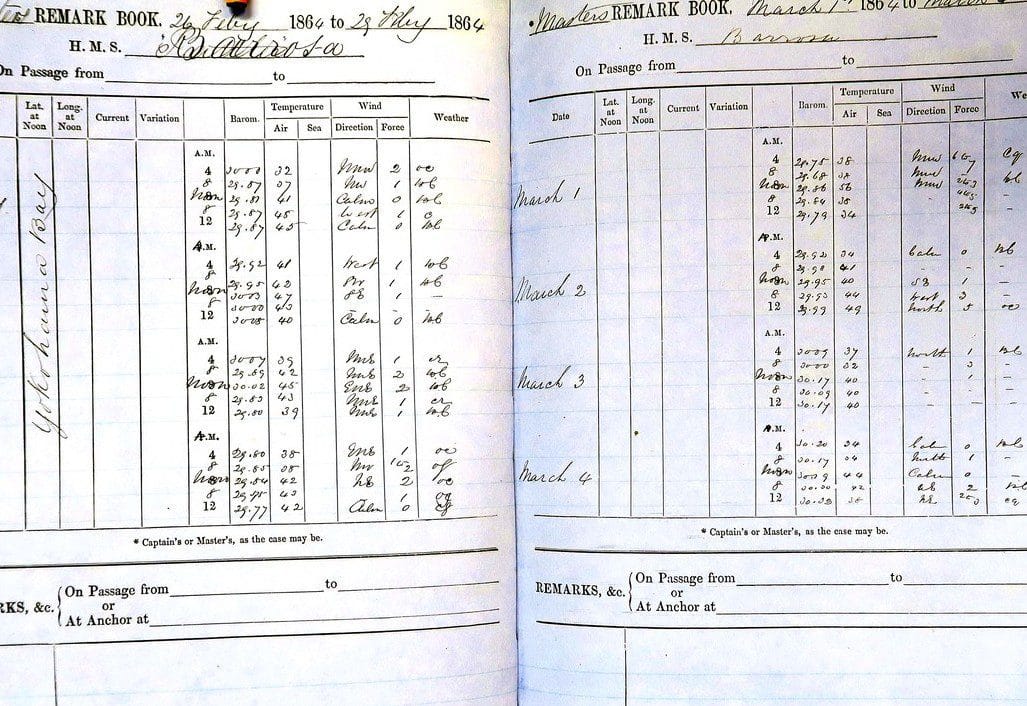 REMARK BOOK. 26 Feby 1864 to 29 Feby 1864
H. M. S. Barrosa
On Passage from to
Lat. at Noon Long. at Noon Current Variation Barom. Temperature Air Sea Wind Direction Force Weather
Yokohama Bay
A.M.
4 32 NNW 2 oc
8 29.87 37 NW 1
Noon 41 Calm 0
8 29.87 45 West 1 c
12 29.87 45 Calm 0
A.M.
4 29.92 41 West 1
8 29.95 42 1
Noon 3003 47 SE 1 —
8 3000 43
12 3005 40 Calm 0
A.M.
4 3007 39 NNE 1
8 29.89 42 2
Noon 30.02 45 ENE 2
8 29.83 43 NNE 1
12 29.80 39 NNE 1
A.M.
4 29.80 38 ENE 1 oc
8 29.85 38 NW 1 to 2
Noon 29.84 42 NE 2 oc
8 43 1
12 29.77 42 Calm 0
* Captain's or Master's, as the case may be.
RKS, &c. On Passage from to
or
At Anchor at
Masters REMARK BOOK. March 1st 1864 to March
H. M. S. Barrosa
On Passage from to
Date Lat. at Noon Long. at Noon Current Variation Barom. Temperature Air Sea Wind Direction Force We
March 1
A.M.
4 29.75 38 NNW 6 to 7 cq
8 29.68 NNW
Noon 29.86 56 NNW
8 29.84 38
12 29.79 34
March 2
A.M.
4 29.92 34 Calm 0
8 29.98 41 - - -
Noon 29.95 40 SE 1 -
8 29.93 44 West 3 -
12 29.99 49 North 5 oc
March 3
A.M.
4 3009 37 North 1
8 3000 32 - 3 -
Noon 30.17 40 - 1 -
8 30.09 40 - -
12 30.17 40 - - -
March 4
A.M.
4 30.20 34 Calm 0
8 30.17 34 North 1 -
Noon 3009 44 Calm 0 -
8 42 NE 2
12 38 NE 2 to 3 cq
* Captain's or Master's, as the case may be.
REMARKS, &c. On Passage from to
or
At Anchor at